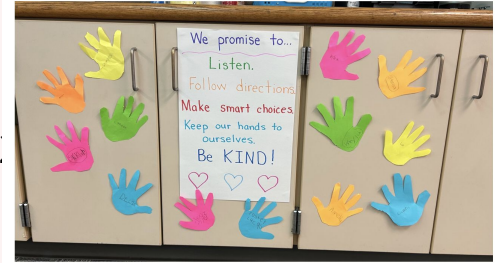 We promise to...
Listen.
Follow directions.
Make smart choices.
Keep our hands to
ourselves.
Be KIND!